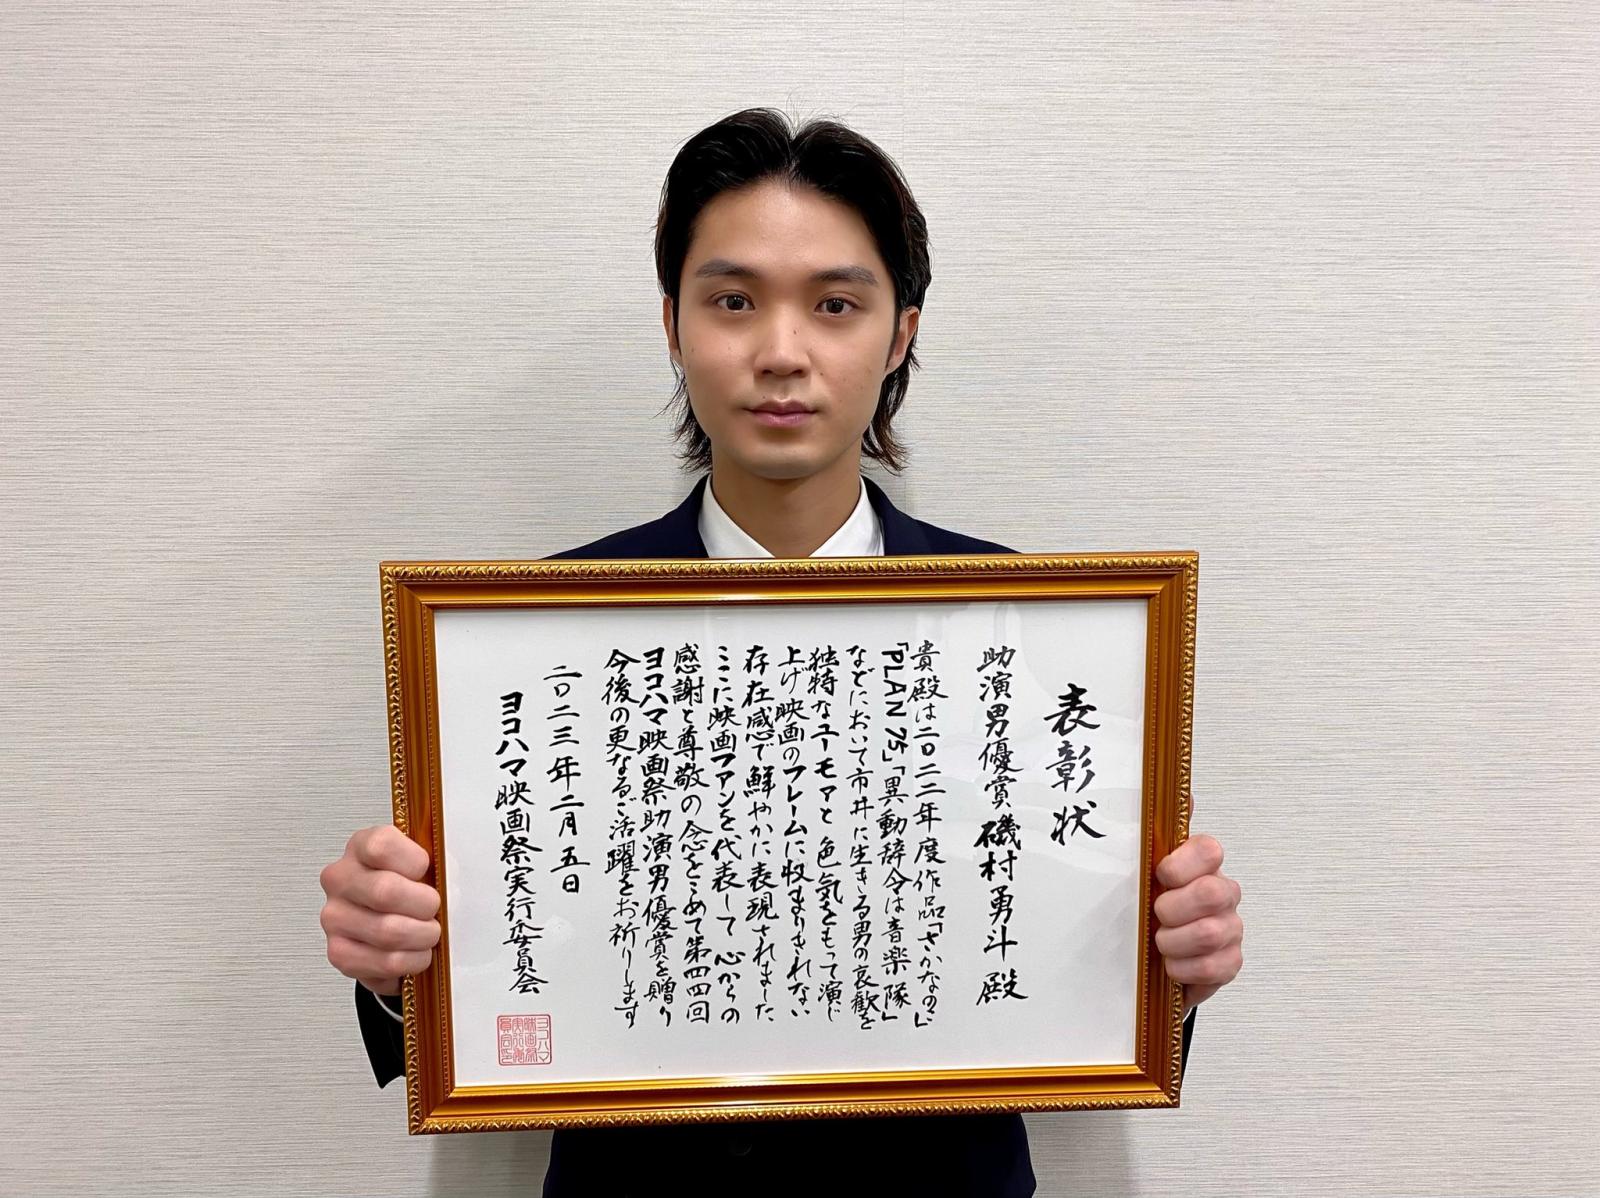 表彰状
助演男優賞 磯村勇斗 殿
貴殿は二〇二二年度作品「さかなのこ」
「PLAN 75」「異動辞令は音楽隊」
などにおいて市井に生きる男の哀歓を
独特なユーモアと色気をもって演じ
上げ映画のフレームに収まりきれない
存在感で鮮やかに表現されました
ここに映画ファンを代表して心からの
感謝と尊敬の念をこめて第四四回
ヨコハマ映画祭助演男優賞を贈り
今後の更なるご活躍をお祈りします
二〇二三年二月五日
ヨコハマ映画祭実行委員会
ヨコハマ
映画祭
実行委
員会印